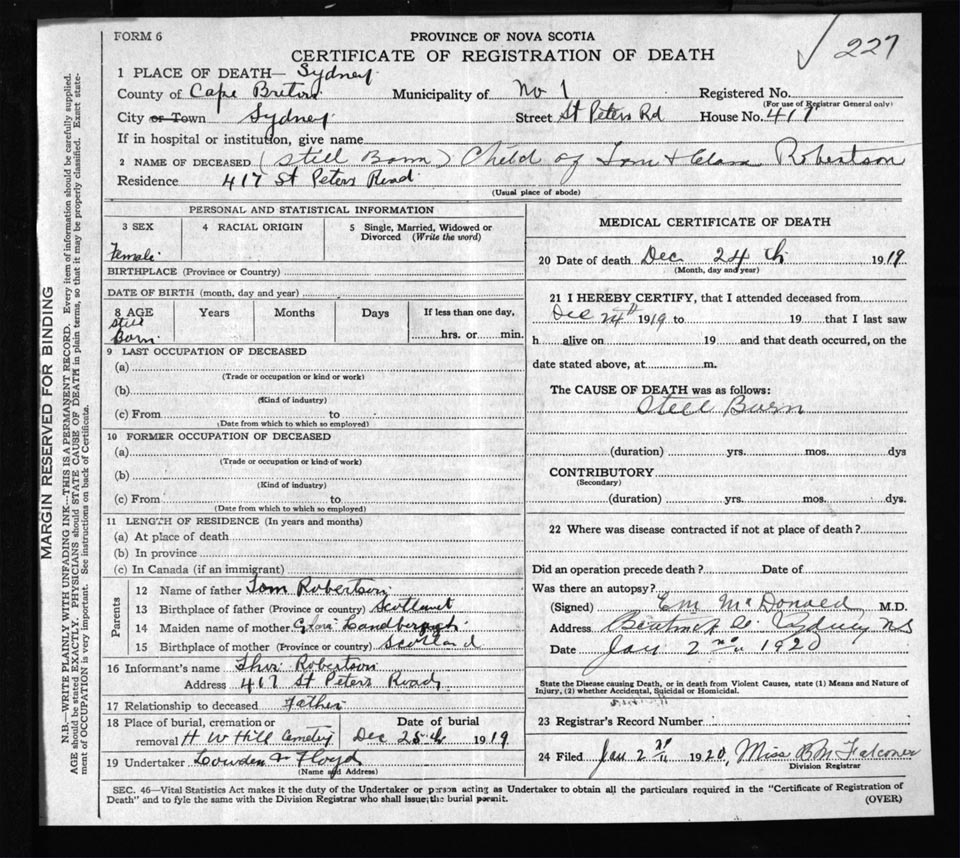 FORM 6
PROVINCE OF NOVA SCOTIA
CERTIFICATE OF REGISTRATION OF DEATH
227
1 PLACE OF DEATH— Sydney
County of Cape Breton Municipality of No 1 Registered No.
(For use of Registrar General only)
City or Town Sydney Street St Peters Rd House No. 417
If in hospital or institution, give name
2 NAME OF DECEASED (Still Born) Child of Tom & Clara Robertson
Residence 417 St Peters Road
(Usual place of abode)
PERSONAL AND STATISTICAL INFORMATION
3 SEX 4 RACIAL ORIGIN 5 Single, Married, Widowed or
Divorced (Write the word)
Female
BIRTHPLACE (Province or Country)
DATE OF BIRTH (month, day and year)
8 AGE Years Months Days If less than one day,
Still
Born hrs. or min.
9 LAST OCCUPATION OF DECEASED
(a)
(Trade or occupation or kind or work)
(b)
(Kind of industry)
(c) From to
(Date from which to which so employed)
10 FORMER OCCUPATION OF DECEASED
(a)
(Trade or occupation or kind of work)
(b)
(Kind of industry)
(c) From to
(Date from which to which so employed)
11 LENGTH OF RESIDENCE (In years and months)
(a) At place of death
(b) In province
(c) In Canada (if an immigrant)
Parents
12 Name of father Tom Robertson
13 Birthplace of father (Province or country) Scotland
14 Maiden name of mother
15 Birthplace of mother (Province or country) Scotland
16 Informant's name Robertson
Address 417 St Peters Road
17 Relationship to deceased Father
18 Place of burial, cremation or Date of burial
removal H W Hill Cemetery Dec 25th 1919
19 Undertaker Lowden & Floyd
(Name and Address)
MEDICAL CERTIFICATE OF DEATH
20 Date of death Dec 24th 1919
(Month, day and year)
21 I HEREBY CERTIFY, that I attended deceased from
Dec 24th 1919 to 19 that I last saw
h alive on 19 and that death occurred, on the
date stated above, at m.
The CAUSE OF DEATH was as follows:
Still Born
(duration) yrs. mos. dys
CONTRIBUTORY
(Secondary)
(duration) yrs. mos. dys.
22 Where was disease contracted if not at place of death?
Did an operation precede death? Date of
Was there an autopsy?
(Signed) E M McDonald M.D.
Address Sydney NS
Date Jan 2nd 1920
State the Disease causing Death, or in death from Violent Causes, state (1) Means and Nature of
Injury, (2) whether Accidental, Suicidal or Homicidal.
23 Registrar's Record Number
24 Filed Jan 2nd 1920, Miss B M Falconer
Division Registrar
SEC. 46—Vital Statistics Act makes it the duty of the Undertaker or person acting as Undertaker to obtain all the particulars required in the "Certificate of Registration of
Death" and to fyle the same with the Division Registrar who shall issue the burial permit.
(OVER)
MARGIN RESERVED FOR BINDING
N.B.—WRITE PLAINLY WITH UNFADING INK—THIS IS A PERMANENT RECORD. Every item of information should be carefully supplied.
AGE should be stated EXACTLY. PHYSICIANS should STATE CAUSE OF DEATH in plain terms, so that it may be properly classified. Exact state-
ment of OCCUPATION is very important. See instructions on back of Certificate.